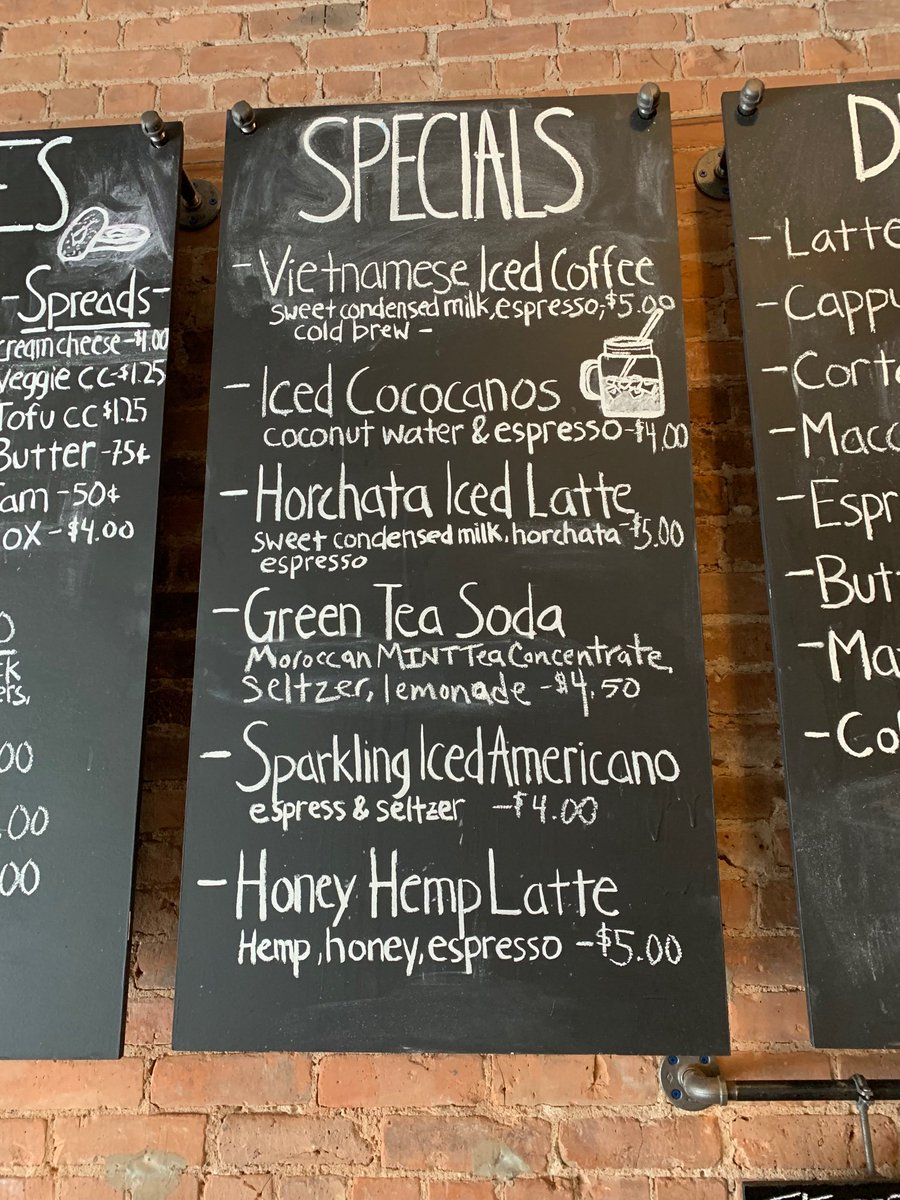 ES
-Spreads-
cream cheese -$1.00
Veggie CC-$1.25
Tofu CC $1.25
Butter -75¢
Jam -50¢
ox -$4.00
SPECIALS
- Vietnamese Iced Coffee
sweet condensed milk, espresso, $5.00
cold brew -
- Iced Cococanos
coconut water & espresso -$4.00
- Horchata Iced Latte
sweet condensed milk, horchata -$5.00
espresso
- Green Tea Soda
Moroccan MINT Tea Concentrate,
Seltzer, lemonade -$4.50
- Sparkling Iced Americano
espress & seltzer -$4.00
- Honey Hemp Latte
Hemp, honey, espresso -$5.00
D
- Latte
- Cappu
- Corta
- Macc
- Espr
- Butt
- Ma
- Co